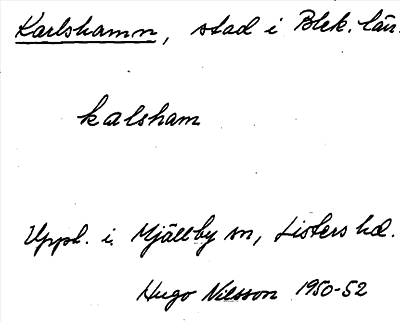 Karlshamn, stad i Blek. län.
kalsham
Uppt. i Mjällby sn, Listers hd.
Hugo Nilsson 1950-52